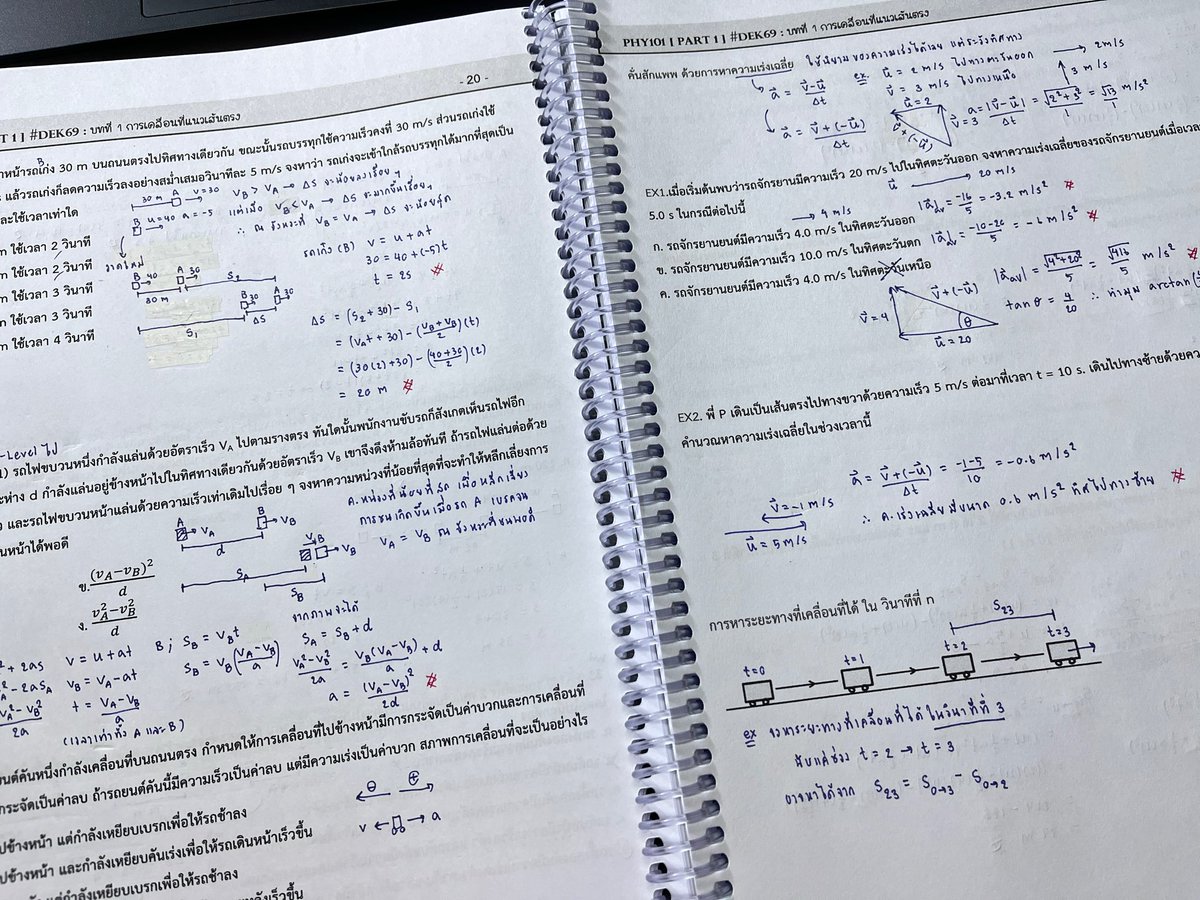 - 20 -
T 1 ] #DEK69 : บทที่ 1 การเคลื่อนที่แนวเส้นตรง
หน้ารถเก่ง 30 m บนถนนตรงไปทิศทางเดียวกัน ขณะนั้นรถบรรทุกใช้ความเร็วคงที่ 30 m/s ส่วนรถเก่งใช้
แล้วรถเก่งก็ลดความเร็วลงอย่างสม่ำเสมอวินาทีละ 5 m/s จงหาว่า รถเก่งจะเข้าใกล้รถบรรทุกได้มากที่สุดเป็น
ละใช้เวลาเท่าใด
30 m A v = 30
B u = 40 a = -5
V_B > V_A → ΔS จะน้อยลงเรื่อยๆ
แต่เมื่อ V_B < V_A → ΔS จะมากขึ้นเรื่อยๆ
∴ ณ จังหวะที่ V_B = V_A → ΔS จะน้อยสุด
m ใช้เวลา 2 วินาที
m ใช้เวลา 2 วินาที
m ใช้เวลา 3 วินาที
m ใช้เวลา 3 วินาที
m ใช้เวลา 4 วินาที
วาดใหม่
B 40 A 30 S₂
30 m B 30 A 30
S₁ ΔS
รถเก๋ง (B) v = u + at
30 = 40 + (-5)t
t = 2s
ΔS = (S₂ + 30) - S₁
= (V_A t + 30) - (V_B + V_B / 2)(t)
= (30(2) + 30) - (40+30 / 2)(2)
= 20 m
-Level ไป
1) รถไฟขบวนหนึ่งกำลังแล่นด้วยอัตราเร็ว V_A ไปตามรางตรง ทันใดนั้นพนักงานขับรถก็สังเกตเห็นรถไฟอีก
ะห่าง d กำลังแล่นอยู่ข้างหน้าไปในทิศทางเดียวกันด้วยอัตราเร็ว V_B เขาจึงดึงห้ามล้อทันที ถ้ารถไฟแล่นต่อด้วย
และรถไฟขบวนหน้าแล่นด้วยความเร็วเท่าเดิมไปเรื่อย ๆ จงหาความหน่วงที่น้อยที่สุดที่จะทำให้หลีกเลี่ยงการ
นหน้าได้พอดี
A V_A B V_B
d
S_A S_B
ค.หน่วงที่น้อยที่สุด เมื่อหลีกเลี่ยง
การชนเกิดขึ้นเมื่อรถ A เบรคจน
V_A = V_B ณ จังหวะที่ชนพอดี
ข. (v_A - v_B)² / d
ง. v_A² - v_B² / d
v = u + at
V_B = V_A - at
t = V_A - V_B / a
(เวลาเท่าทั้ง A และ B)
B ; S_B = V_B t
S_B = V_B (V_A - V_B / a)
จากภาพจะได้
S_A = S_B + d
V_A² - V_B² / 2a = V_B (V_A - V_B) / a + d
a = (V_A - V_B)² / 2d
ยนต์คันหนึ่งกำลังเคลื่อนที่บนถนนตรง กำหนดให้การเคลื่อนที่ไปข้างหน้ามีการกระจัดเป็นค่าบวกและการเคลื่อนที่
การกระจัดเป็นค่าลบ ถ้ารถยนต์คันนี้มีความเร็วเป็นค่าลบ แต่มีความเร่งเป็นค่าบวก สภาพการเคลื่อนที่จะเป็นอย่างไร
ปข้างหน้า แต่กำลังเหยียบเบรกเพื่อให้รถช้าลง
ปข้างหน้า และกำลังเหยียบคันเร่งเพื่อให้รถเดินหน้าเร็วขึ้น
แต่กำลังเหยียบเบรกเพื่อให้รถช้าลง
⊖ ⊕
v ← → a
PHY101 [ PART 1 ] #DEK69 : บทที่ 1 การเคลื่อนที่แนวเส้นตรง
คั่นสักแพพ ด้วยการหาความเร่งเฉลี่ย ใช้นิยามของความเร่งได้เลย แต่ระวังทิศทาง
ex. u = 2 m/s ไปทางตะวันออก → 2 m/s
v = 3 m/s ไปทางเหนือ 3 m/s
a = v - u / Δt
a = v + (-u) / Δt
u = 2 v = 3
v + (-u)
a = |v - u| / Δt = √2² + 3² / 1 = √13 / 1 m/s²
EX1.เมื่อเริ่มต้นพบว่ารถจักรยานมีความเร็ว 20 m/s ไปในทิศตะวันออก จงหาความเร่งเฉลี่ยของรถจักรยานยนต์เมื่อเวล
5.0 s ในกรณีต่อไปนี้
u → 20 m/s
→ 4 m/s
ก. รถจักรยานยนต์มีความเร็ว 4.0 m/s ในทิศตะวันออก |a|av = -16 / 5 = -3.2 m/s²
ข. รถจักรยานยนต์มีความเร็ว 10.0 m/s ในทิศตะวันตก |a|av = -10-20 / 5 = -6 m/s²
ค. รถจักรยานยนต์มีความเร็ว 4.0 m/s ในทิศตะวันเหนือ |a_av| = √4² + 20² / 5 = √416 / 5 m/s²
v = 4 v + (-u) θ u = 20
tan θ = 4 / 20 ∴ ทำมุม arctan(
EX2. พี่ P เดินเป็นเส้นตรงไปทางขวาด้วยความเร็ว 5 m/s ต่อมาที่เวลา t = 10 s. เดินไปทางซ้ายด้วยคว
คำนวณหาความเร่งเฉลี่ยในช่วงเวลานี้
v = -1 m/s
u = 5 m/s
a = v + (-u) / Δt = -1-5 / 10 = -0.6 m/s²
∴ ค.เร่งเฉลี่ย มีขนาด 0.6 m/s² ทิศไปทางซ้าย
การหาระยะทางที่เคลื่อนที่ได้ ใน วินาทีที่ n
S₂₃
t=0 t=1 t=2 t=3
ex จงหาระยะทางที่เคลื่อนที่ได้ ในวินาทีที่ 3
คือแค่ช่วง t = 2 → t = 3
อาจหาได้จาก S₂₃ = S₀→₃ - S₀→₂